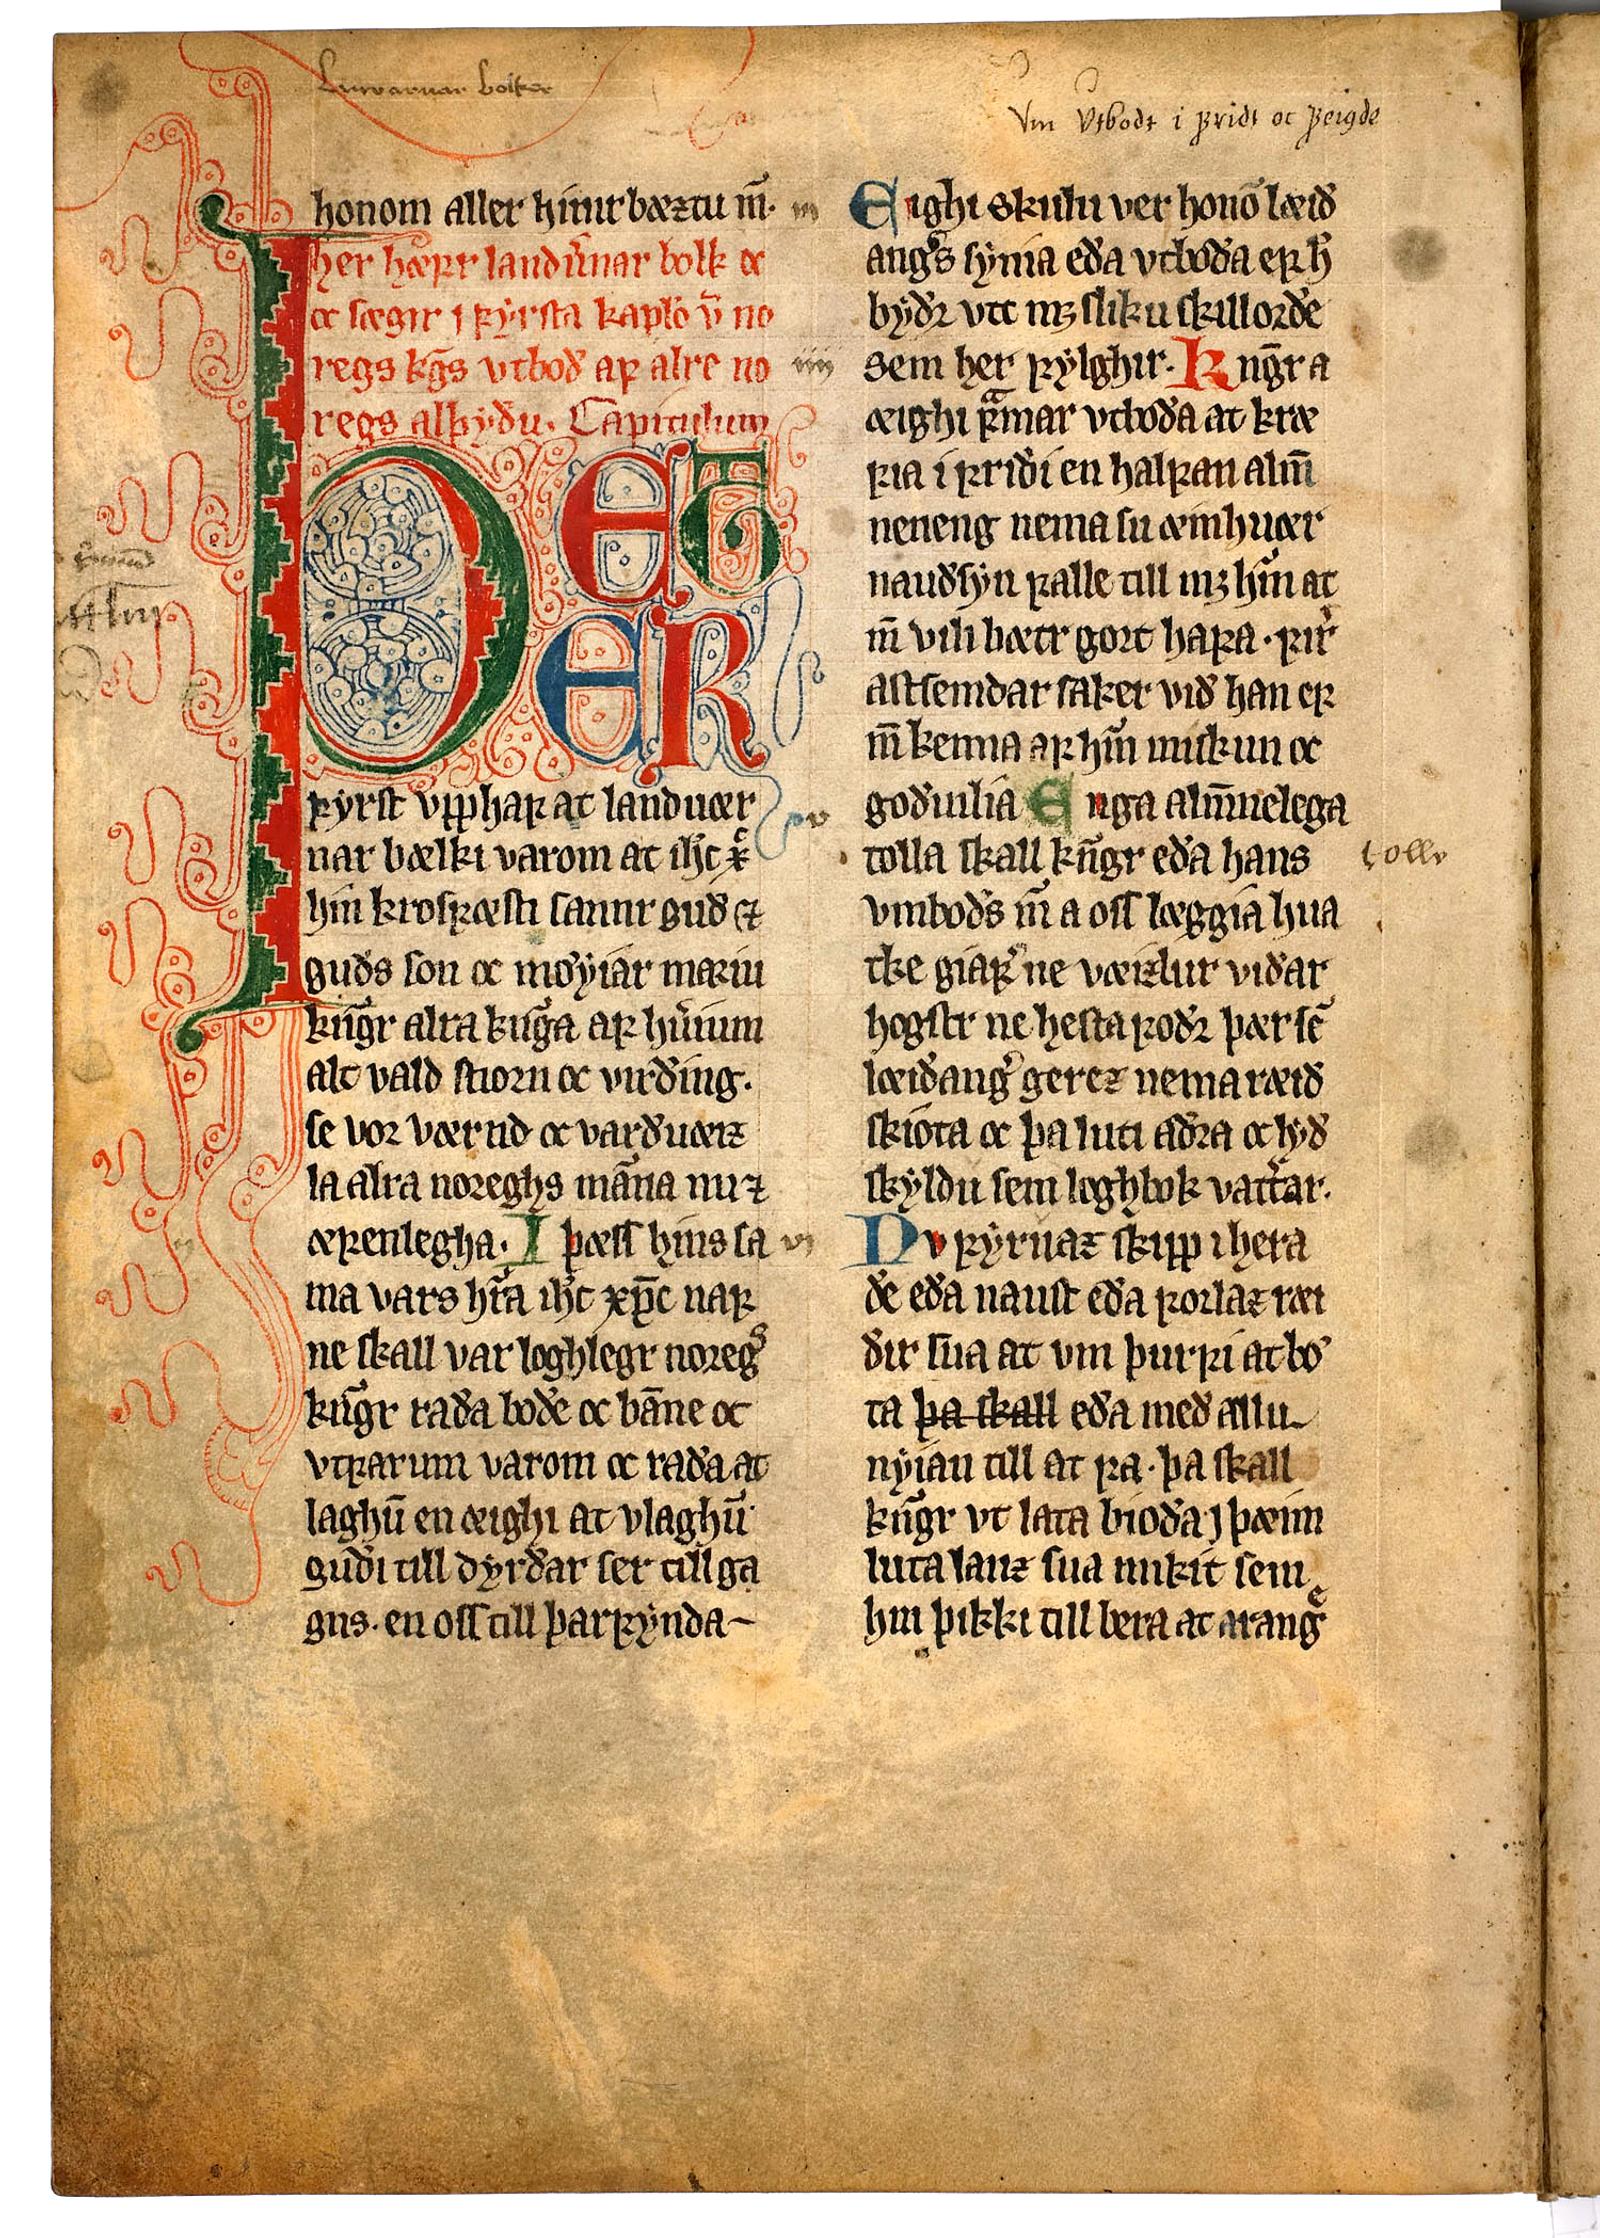 Landvarnar bolker
Vm Vtbodt i fridt oc feigde
honom aller hinir bæztu m̄.
her hæfr landv̄nar bolk oc
oc sægir j fyrsta kaplo v̄ no
regs kgs vtboð af alre no
regs alþyðu. Capitulum
ÞET
ER
fyrst vpphaf at landuær
nar bælki varom at ihc x
hin krosfæsti sannr guð ⁊
guðs son oc møyiar mariu
kn̄gr alra kn̄ga af hua̅ium
alt vald stiorn oc virðing.
se vor værnd oc varðuæiz
la alra noreghs man̄a nu ⁊
æfenlegha. I þæss hins sa
ma vars hr̄a ihc xp̄c naf
ne skall var loghlegr noregs
kn̄gr raða boðe oc ban̄e oc
vtfarum varom oc raða at
laghū en æighi at vlaghū
guði till dyrðar ser till ga
gns. en oss till þarfynda
iii
Eighi skulu ver honō læið
angs synia eða vtboða ef h̄
byðr vtt mꝫ sliku skillorðe
iiii
sem her fylghir. Kngr a
æighi framar vtboða at kræ
fia i friði en halfan alm̄
neneng nema su æinhuær
nauðsyn falle till mꝫ hn̄ at
m̄ vili bætr gort hafa. fir
astsemdar saker við han ef
m̄ kenna af hn̄ miskun oc
v
goðuilia Enga alm̄nelega
tolla skall kn̄gr eða hans
tolle
vmboðs m̄ a oss læggia hua
tke giafr ne væizlur viðar
hogstr ne hesta foðr þær sē
læiðangr gerez nema ræið
skiota oc þa luti aðra oc lyð
skyldu sem loghbok vattar.
vi
Nv fyrnaz skipp i hera
ðe eða naust eða forlaz ræi
ðir sua at vm þurfi at bø
ta þa skall eða með allu
nyiau till at fa. þa skall
kn̄gr vt lata bioða j þæim
luta lanz sua mikit sem
hn̄ þikki till bera at arang